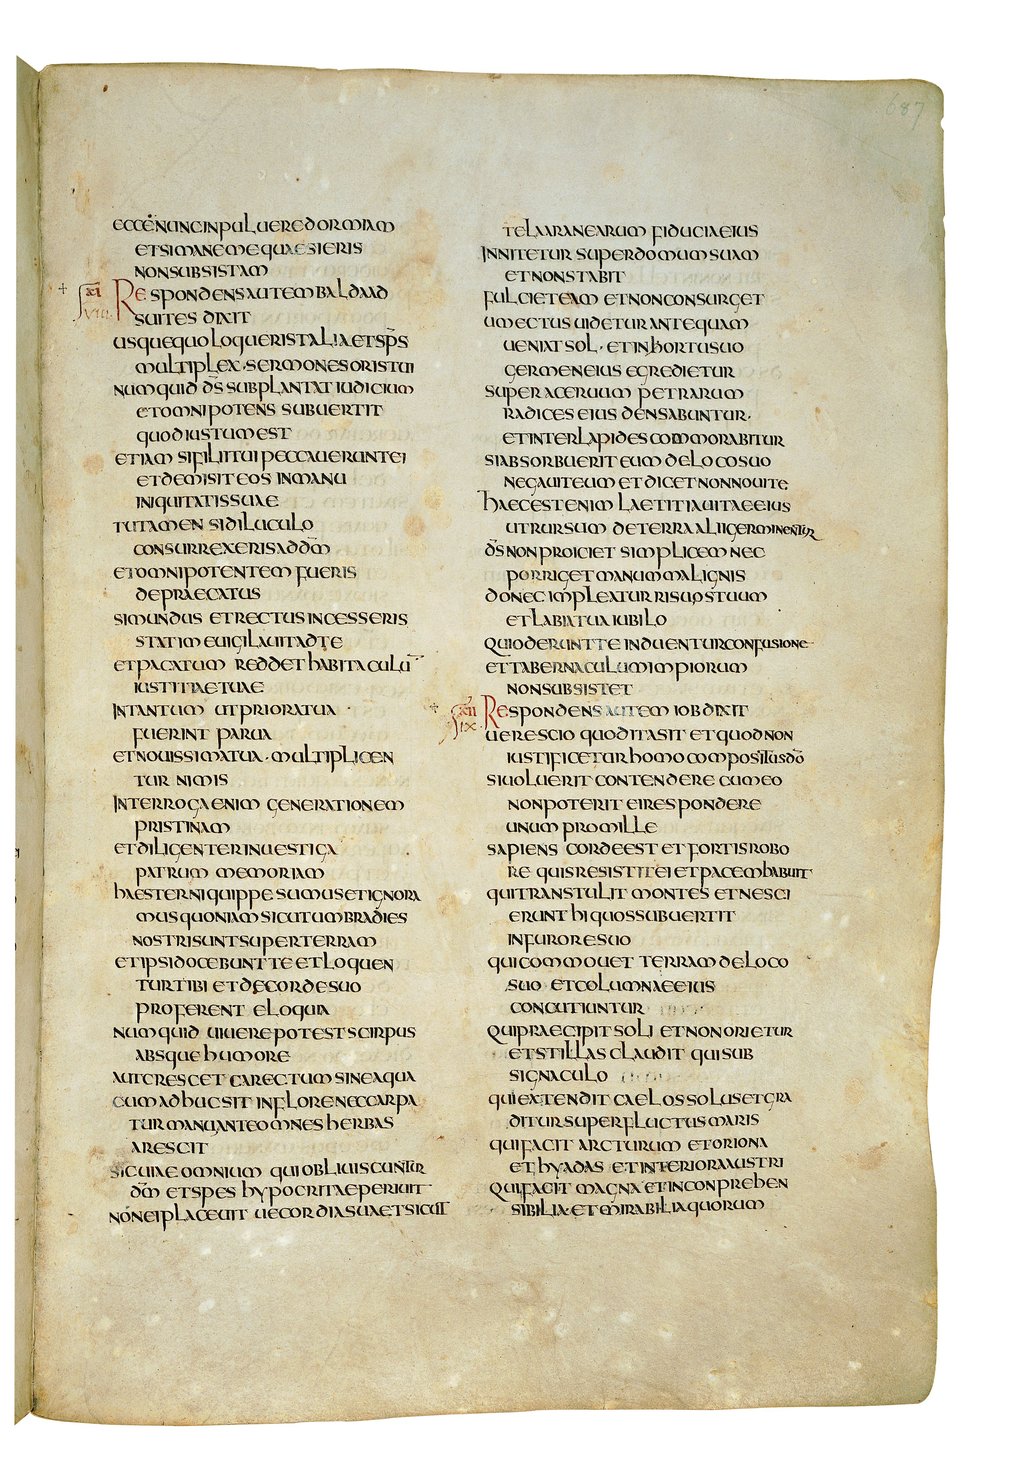 687
ECCE NUNC IN PULUERE DORMIAM
ET SI MANE ME QUAESIERIS
NON SUBSISTAM
XI
RESPONDENS AUTEM BALDAD
XVIII
SUITES DIXIT
USQUEQUO LOQUERIS TALIA ET SP̄S
MULTIPLEX · SERMONES ORIS TUI
NUMQUID D̄S SUBPLANTAT IUDICIUM
ET OMNIPOTENS SUBUERTIT
QUOD IUSTUM EST
ETIAM SI FILII TUI PECCAUERUNT EI
ET DEMISIT EOS IN MANU
INIQUITATIS SUAE
TU TAMEN SI DILUCULO
CONSURREXERIS AD D̄M
ET OMNIPOTENTEM FUERIS
DEPRAECATUS
SI MUNDUS ET RECTUS INCESSERIS
STATIM EUIGILAUIT AD TE
ET PACATUM REDDET HABITACULŪ
IUSTITIAE TUAE
IN TANTUM UT PRIORA TUA
FUERINT PARUA
ET NOUISSIMA TUA · MULTIPLICEN
TUR NIMIS
INTERROGA ENIM GENERATIONEM
PRISTINAM
ET DILIGENTER INUESTIGA
PATRUM MEMORIAM
HAESTERNI QUIPPE SUMUS ET IGNORA
MUS QUONIAM SICUT UMBRA DIES
NOSTRI SUNT SUPER TERRAM
ET IPSI DOCEBUNT TE ET LOQUEN
TUR TIBI ET DE CORDE SUO
PROFERENT ELOQUIA
NUMQUID UIUERE POTEST SCIRPUS
ABSQUE HUMORE
AUT CRESCET CARECTUM SINE AQUA
CUM ADHUC SIT IN FLORE NEC CARPA
TUR MANU ANTE OMNES HERBAS
ARESCIT
SIC UIAE OMNIUM QUI OBLIUISCUNTUR
D̄M ET SPES HYPOCRITAE PERIUIT
NON EI PLACEUIT UECORDIA SUA ET SICUT
TELA ARANEARUM FIDUCIA EIUS
INNITETUR SUPER DOMUM SUAM
ET NON STABIT
FULCIET EAM ET NON CONSURGET
UMECTUS UIDETUR ANTEQUAM
UENIAT SOL · ET IN HORTU SUO
GERMEN EIUS EGREDIETUR
SUPER ACERUUM PETRARUM
RADICES EIUS DENSABUNTUR ·
ET INTER LAPIDES COMMORABITUR
SI ABSORBUERIT EUM DE LOCO SUO
NEGAUIT EUM ET DICET NON NOUI TE
HAEC EST ENIM LAETITIA UITAE EIUS
UT RURSUM DE TERRA ALII GERMINENTUR
D̄S NON PROICIET SIMPLICEM NEC
PORRIGET MANUM MALIGNIS
DONEC IMPLEATUR RISU OS TUUM
ET LABIA TUA IUBILO
QUI ODERUNT TE INDUENTUR CONFUSIONE
ET TABERNACULUM IMPIORUM
NON SUBSISTET
XII
RESPONDENS AUTEM IOB DIXIT
IX
UERE SCIO QUOD ITA SIT ET QUOD NON
IUSTIFICETUR HOMO COMPOSITUS D̄O
SI UOLUERIT CONTENDERE CUM EO
NON POTERIT EI RESPONDERE
UNUM PRO MILLE
SAPIENS CORDE EST ET FORTIS ROBO
RE QUIS RESISTIT EI ET PACEM HABUIT
QUI TRANSTULIT MONTES ET NESCI
ERUNT HI QUOS SUBUERTIT
IN FURORE SUO
QUI COMMOUET TERRAM DE LOCO
SUO ET COLUMNAE EIUS
CONCUTIUNTUR
QUI PRAECIPIT SOLI ET NON ORIETUR
ET STILLAS CLAUDIT QUI SUB
SIGNACULO
QUI EXTENDIT CAELOS SOLUS ET GRA
DITUR SUPER FLUCTUS MARIS
QUI FACIT ARCTURUM ET ORIONA
ET HYADAS ET INTERIORA AUSTRI
QUI FACIT MAGNA ET INCONPREHEN
SIBILIA ET MIRABILIA QUORUM